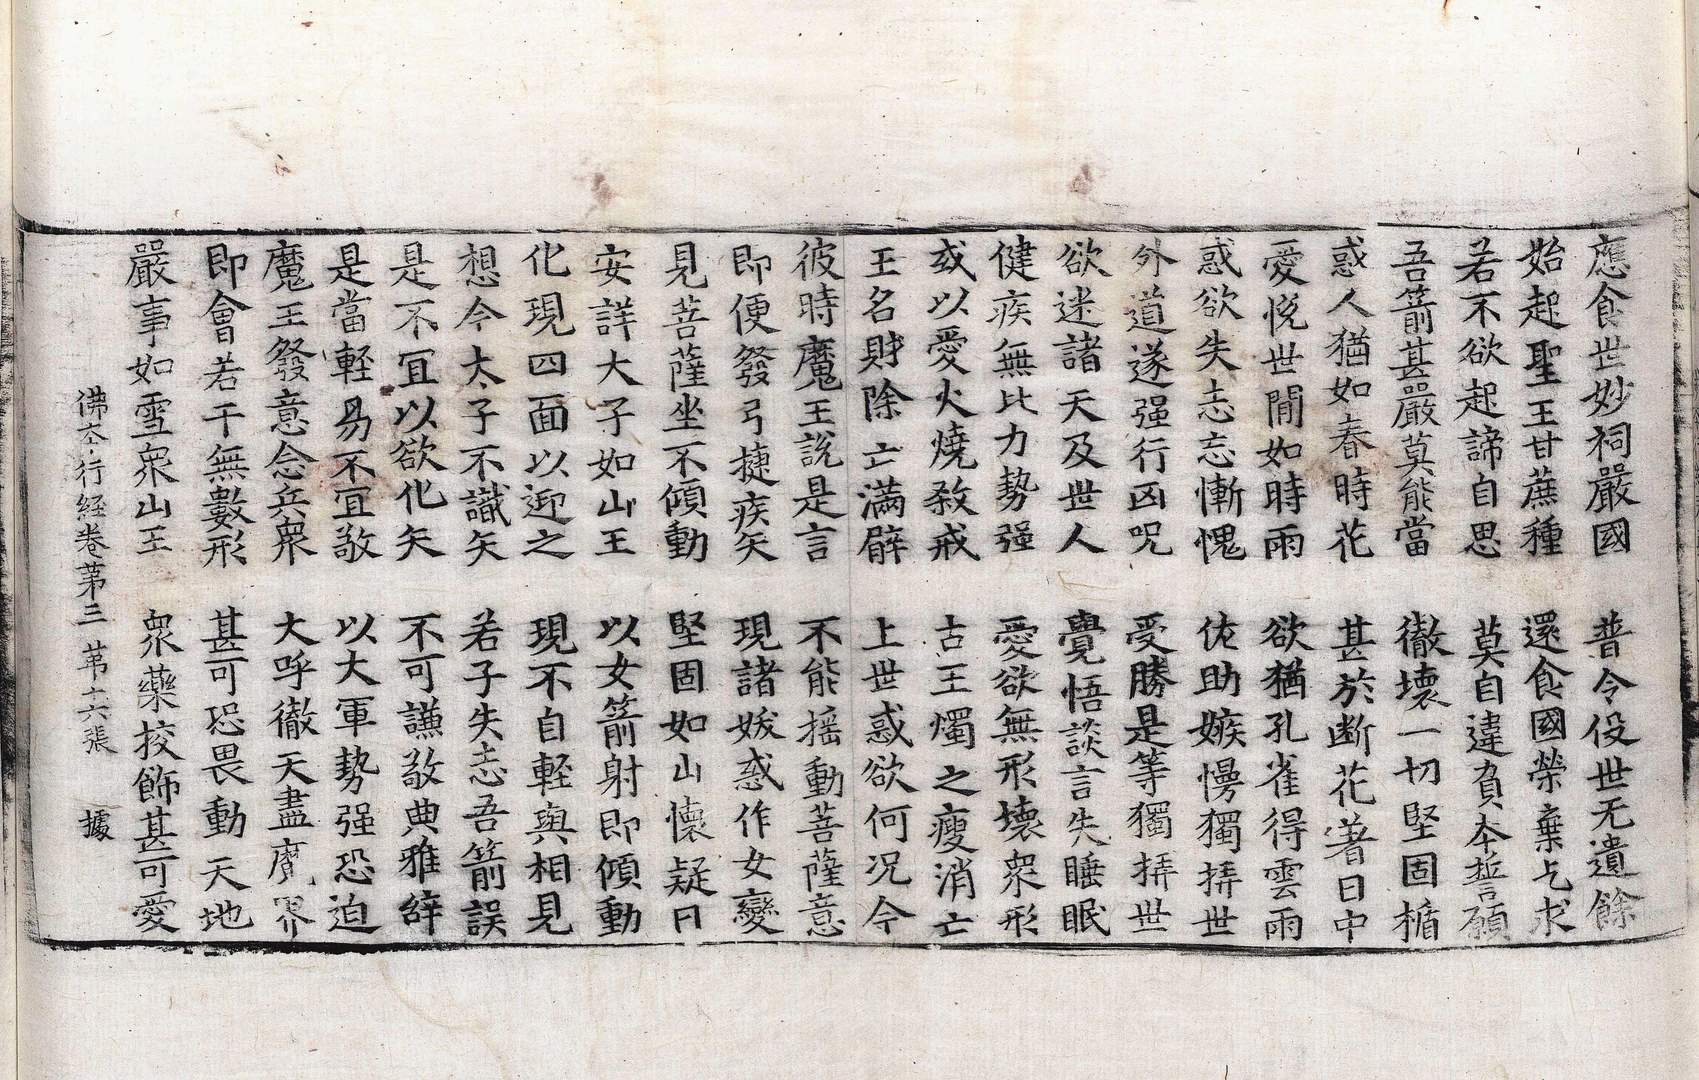 應食世妙祠嚴國　普令役世无遺餘
始起聖王甘蔗種　還食國榮棄乞求
若不欲起諦自思　莫自違負本誓願
吾箭甚嚴莫能當　徹壞一切堅固楯
惑人猶如春時花　甚於斷花著日中
愛悅世間如時雨　欲猶孔雀得雲雨
惑欲失志忘慚愧　佐助嫉慢獨挊世
外道遂强行凶呪　受勝是等獨挊世
欲迷諸天及世人　覺悟談言失睡眠
健疾無比力勢强　愛欲無形壞衆形
或以愛火燒殺戒　古王燭之瘦消亡
王名財除亡滿辟　上世惑欲何況今
彼時魔王說是言　不能摇動菩薩意
即便發弓捷疾矢　現諸妭惑作女變
見菩薩坐不傾動　堅固如山懷疑曰
安詳大子如山王　以女箭射即傾動
化現四面以迎之　現不自輕與相見
想今太子不識矢　若子失志吾箭誤
是不宜以欲化矢　不可謙敬典雅辭
是當輕易不宜敬　以大軍勢强恐迫
魔王發意念兵衆　大呼徹天盡魔界
即會若干無數形　甚可恐畏動天地
嚴事如雪衆山王　衆藥挍飾甚可愛
佛本行經卷第三　第十六張　據